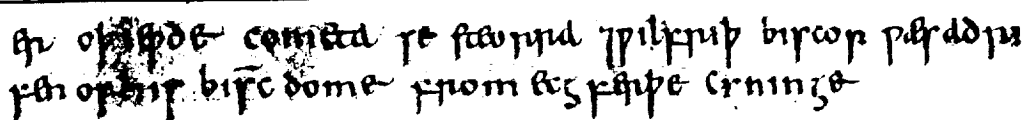 er oþieƿde cometa se steorra ⁊ƿilfriþ biscop ƿæs adri
fen of his bisc̄dome from ecgferþe cyninge